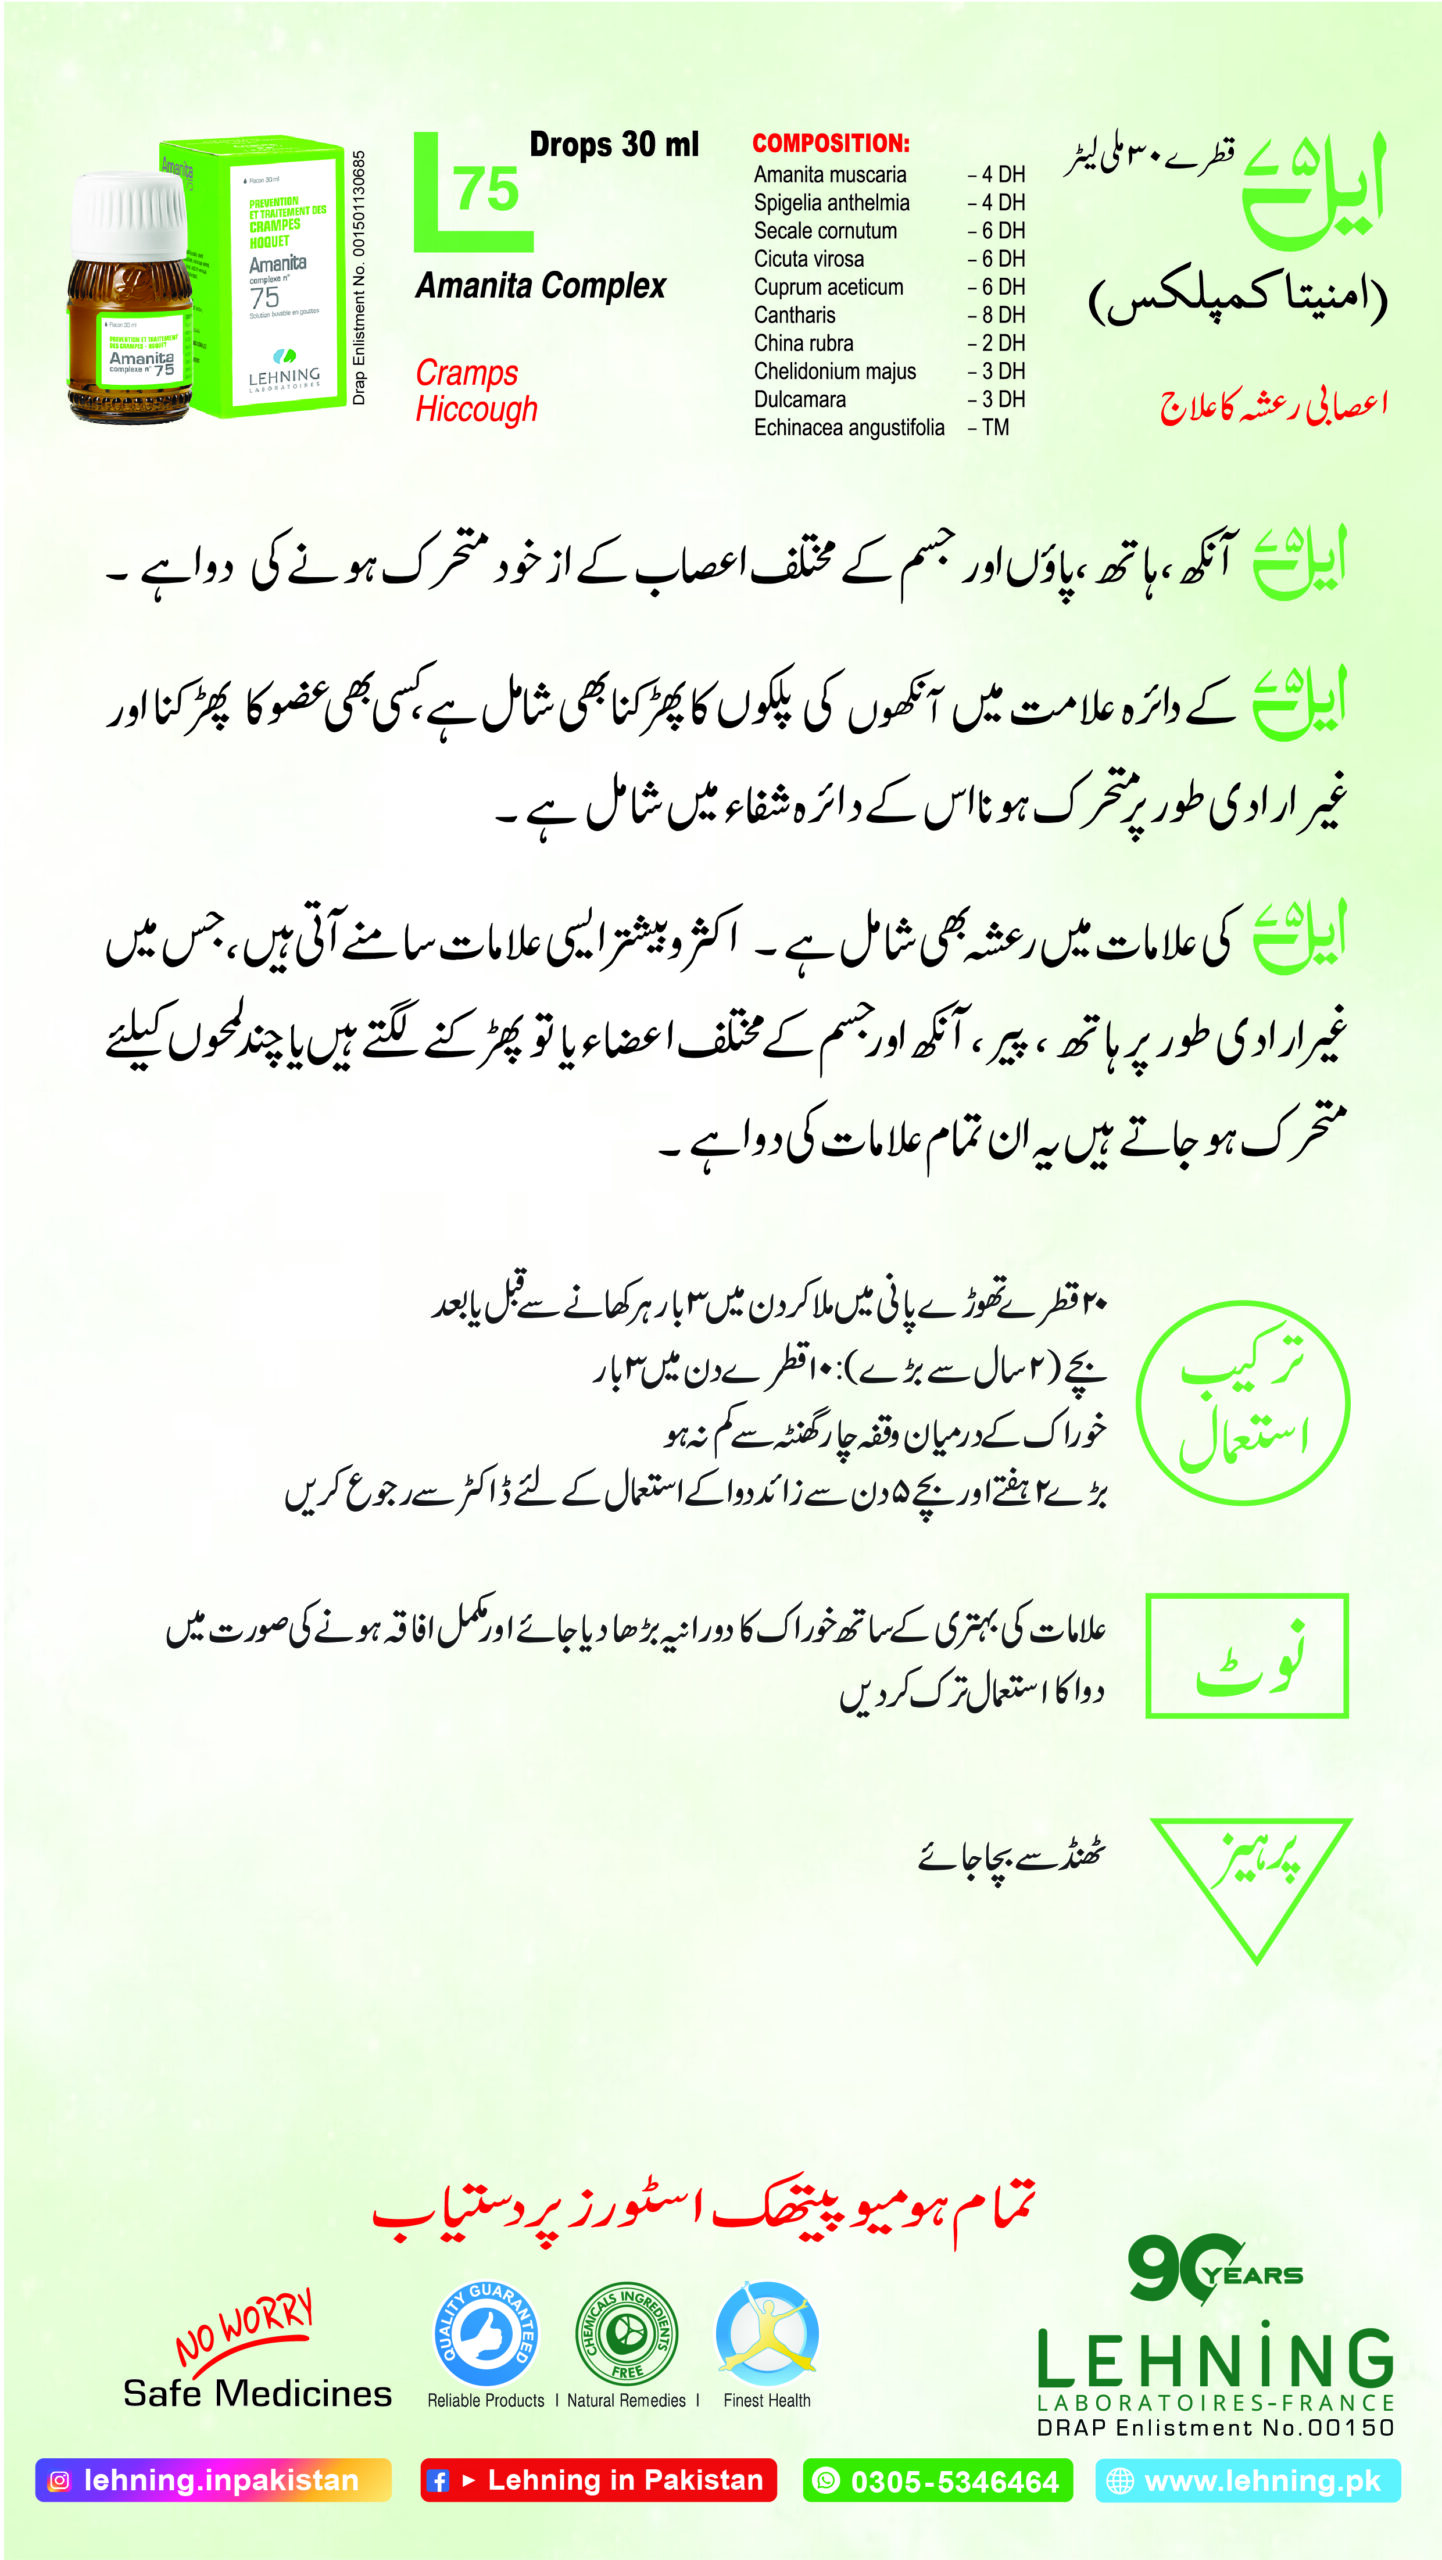 Drops 30 ml
L 75
Amanita Complex
Cramps
Hiccough
Drap Enlistment No. 001501130685
Flacon 30 ml
PREVENTION
ET TRAITEMENT DES
CRAMPES
HOQUET
Amanita
complexe n°
75
Solution buvable en gouttes
LEHNING
LABORATOIRES
Flacon 30 ml
PREVENTION ET TRAITEMENT
DES CRAMPES - HOQUET
Amanita
complexe n° 75
COMPOSITION:
Amanita muscaria – 4 DH
Spigelia anthelmia – 4 DH
Secale cornutum – 6 DH
Cicuta virosa – 6 DH
Cuprum aceticum – 6 DH
Cantharis – 8 DH
China rubra – 2 DH
Chelidonium majus – 3 DH
Dulcamara – 3 DH
Echinacea angustifolia – TM
ایل ۷۵ قطرے ۳۰ ملی لیٹر
(امنیتا کمپلکس)
اعصابی رعشہ کا علاج
ایل ۷۵ آنکھ، ہاتھ، پاؤں اور جسم کے مختلف اعصاب کے از خود متحرک ہونے کی دوا ہے ۔
ایل ۷۵ کے دائرہ علامت میں آنکھوں کی پلکوں کا پھڑکنا بھی شامل ہے، کسی بھی عضو کا پھڑکنا اور
غیر ارادی طور پر متحرک ہونا اس کے دائرہ شفاء میں شامل ہے ۔
ایل ۷۵ کی علامات میں رعشہ بھی شامل ہے ۔ اکثر و بیشتر ایسی علامات سامنے آتی ہیں، جس میں
غیر ارادی طور پر ہاتھ ، پیر ، آنکھ اور جسم کے مختلف اعضاء یا تو پھڑکنے لگتے ہیں یا چند لمحوں کیلئے
متحرک ہو جاتے ہیں یہ ان تمام علامات کی دوا ہے ۔
ترکیب
استعمال
۲۰ قطرے تھوڑے پانی میں ملا کر دن میں ۳ بار ہر کھانے سے قبل یا بعد
بچے (۲ سال سے بڑے): ۱۰ قطرے دن میں ۳ بار
خوراک کے درمیان وقفہ چار گھنٹہ سے کم نہ ہو
بڑے ۲ ہفتے اور بچے ۵ دن سے زائد دوا کے استعمال کے لئے ڈاکٹر سے رجوع کریں
نوٹ
علامات کی بہتری کے ساتھ خوراک کا دورانیہ بڑھا دیا جائے اور مکمل افاقہ ہونے کی صورت میں
دوا کا استعمال ترک کر دیں
پرہیز
ٹھنڈ سے بچا جائے
تمام ہومیو پیتھک اسٹورز پر دستیاب
NO WORRY
Safe Medicines
QUALITY GUARANTEED
CHEMICALS INGREDIENTS FREE
Reliable Products I Natural Remedies I Finest Health
90 YEARS
LEHNING
LABORATOIRES-FRANCE
DRAP Enlistment No.00150
lehning.inpakistan
Lehning in Pakistan
0305-5346464
www.lehning.pk